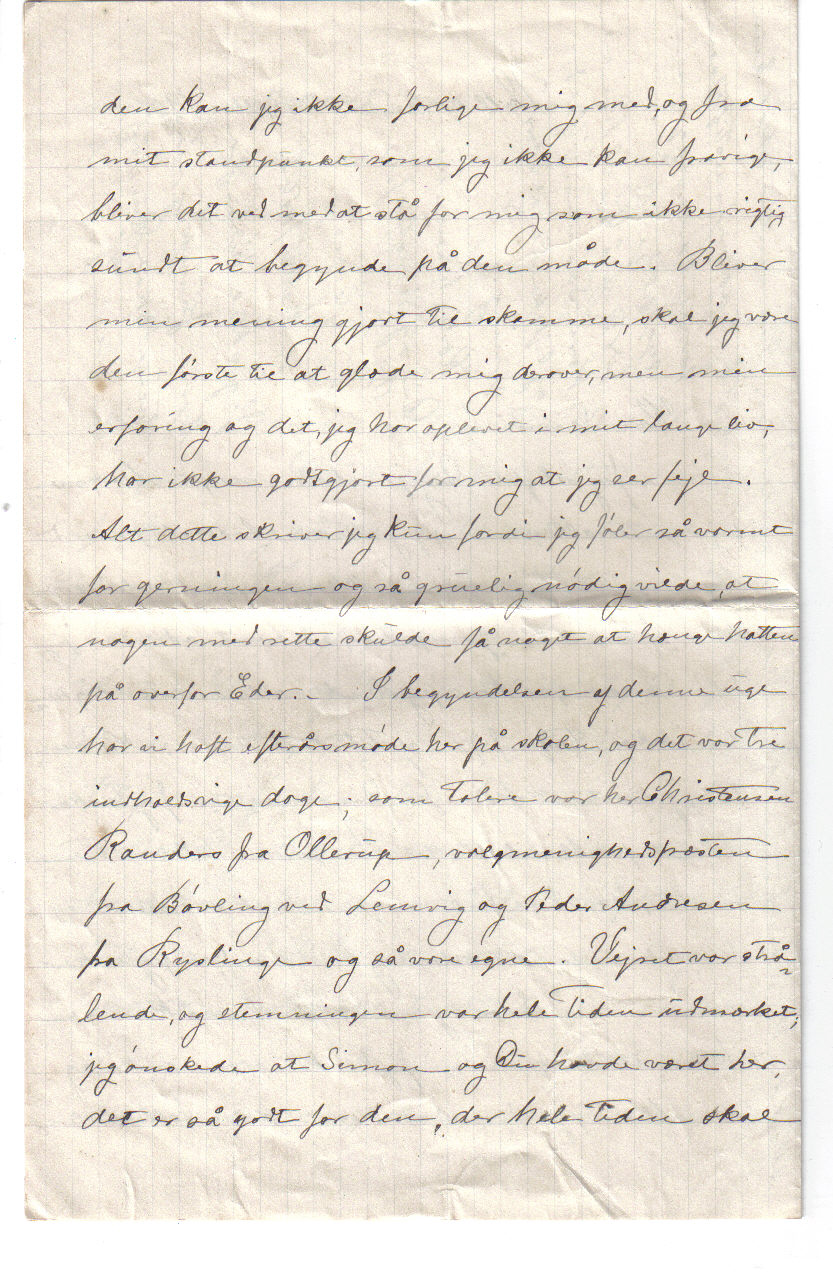 den kan jeg ikke forlige mig med, og fra
mit standpunkt, som jeg ikke kan fravige,
bliver det ved med at stå for mig som ikke rigtig
sundt at begynde på den måde. Bliver
min mening gjort til skamme, skal jeg være
den første til at glæde mig derover, men min
erfaring og det, jeg har oplevet i mit lange liv,
har ikke godtgjort for mig at jeg ser fejl.
Alt dette skriver jeg kun fordi jeg føler så varmt
for gerningen og så gruelig nødig vilde, at
nogen med rette skulde få noget at hænge hatten
på overfor Eder. – I begyndelsen af denne uge
har vi haft efterårsmøde her på skolen, og det var tre
indholdsrige dage; som talere var her Christensen
Randers fra Ollerup, valgmenighedspræsten
fra Bøvling ved Lemvig og Peder Andresen
fra Ryslinge og så vore egne. Vejret var strå-
lende, og stemningen var hele tiden udmærket;
jeg ønskede at Simon og Du havde været her,
det er så godt for den, der hele tiden skal